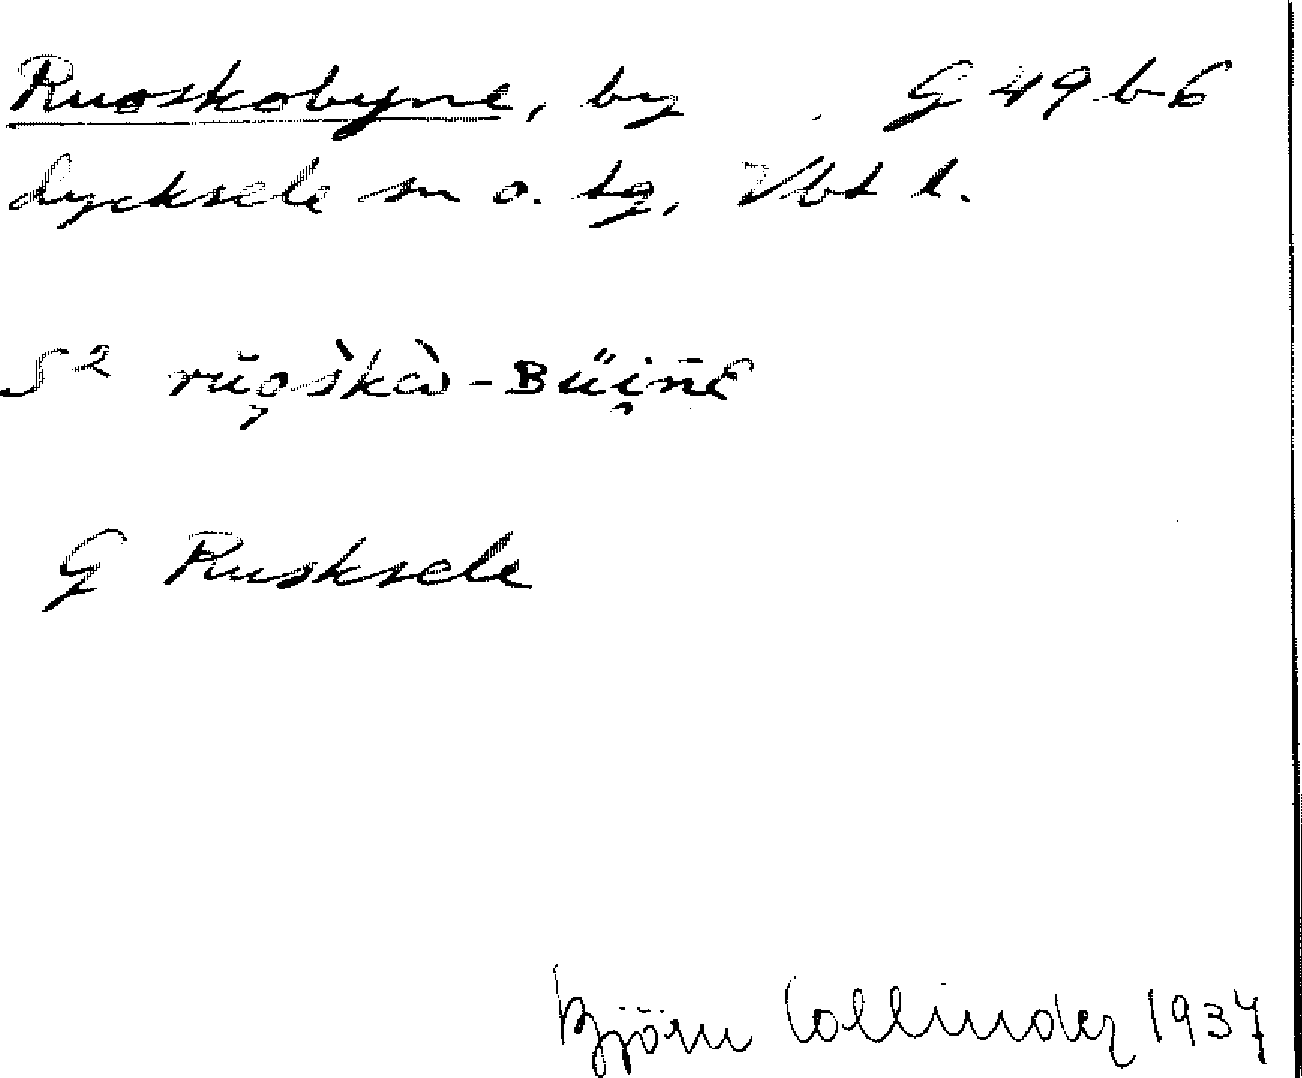 Ruoskobyne, by G 49 b 6
Lycksele sn o. tg, Vbt l.
S² rūo̦šḱὰ-Büi̯nē
G Rusksele
Björn Collinder 1937